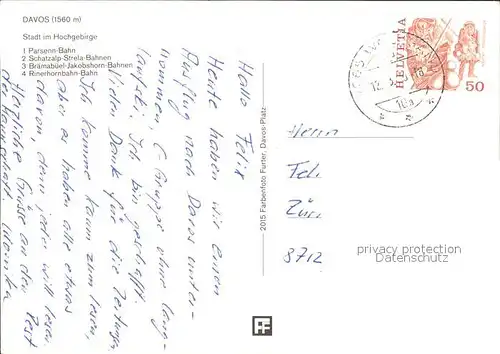 DAVOS (1560 m)
Stadt im Hochgebirge
1 Parsenn-Bahn
2 Schatzalp-Strela-Bahnen
3 Brämabüel-Jakobshorn-Bahnen
4 Rinerhornbahn-Bahn
Hallo Felix
Heute haben wir einen
Ausflug nach Davos unter-
nommen, C Gruppe ohne Lang-
laufski. Ich bin geschafft.
Vielen Dank für die Zeitungen
Ich komme kaum zum lesen,
aber es haben alle etwas
davon, denn jeder will lesen.
Herzliche Grüsse an den Rest
der Mannschaft.
2015 Farbenfoto Furter, Davos-Platz
HELVETIA
50
12.
10
Herrn
Fel
Zür
8712
privacy protection
Datenschutz